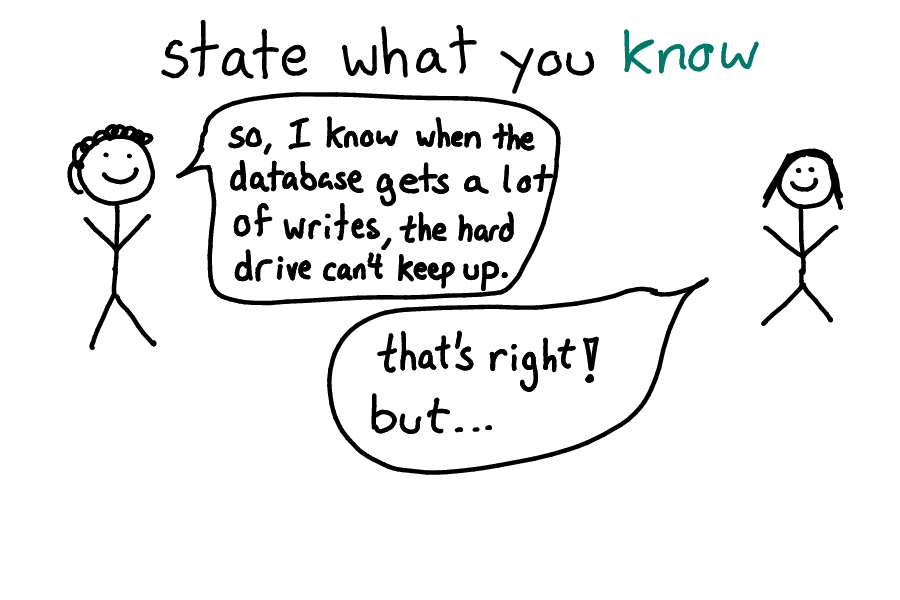 state what you know
so, I know when the
database gets a lot
of writes, the hard
drive can't keep up.
that's right!
but...